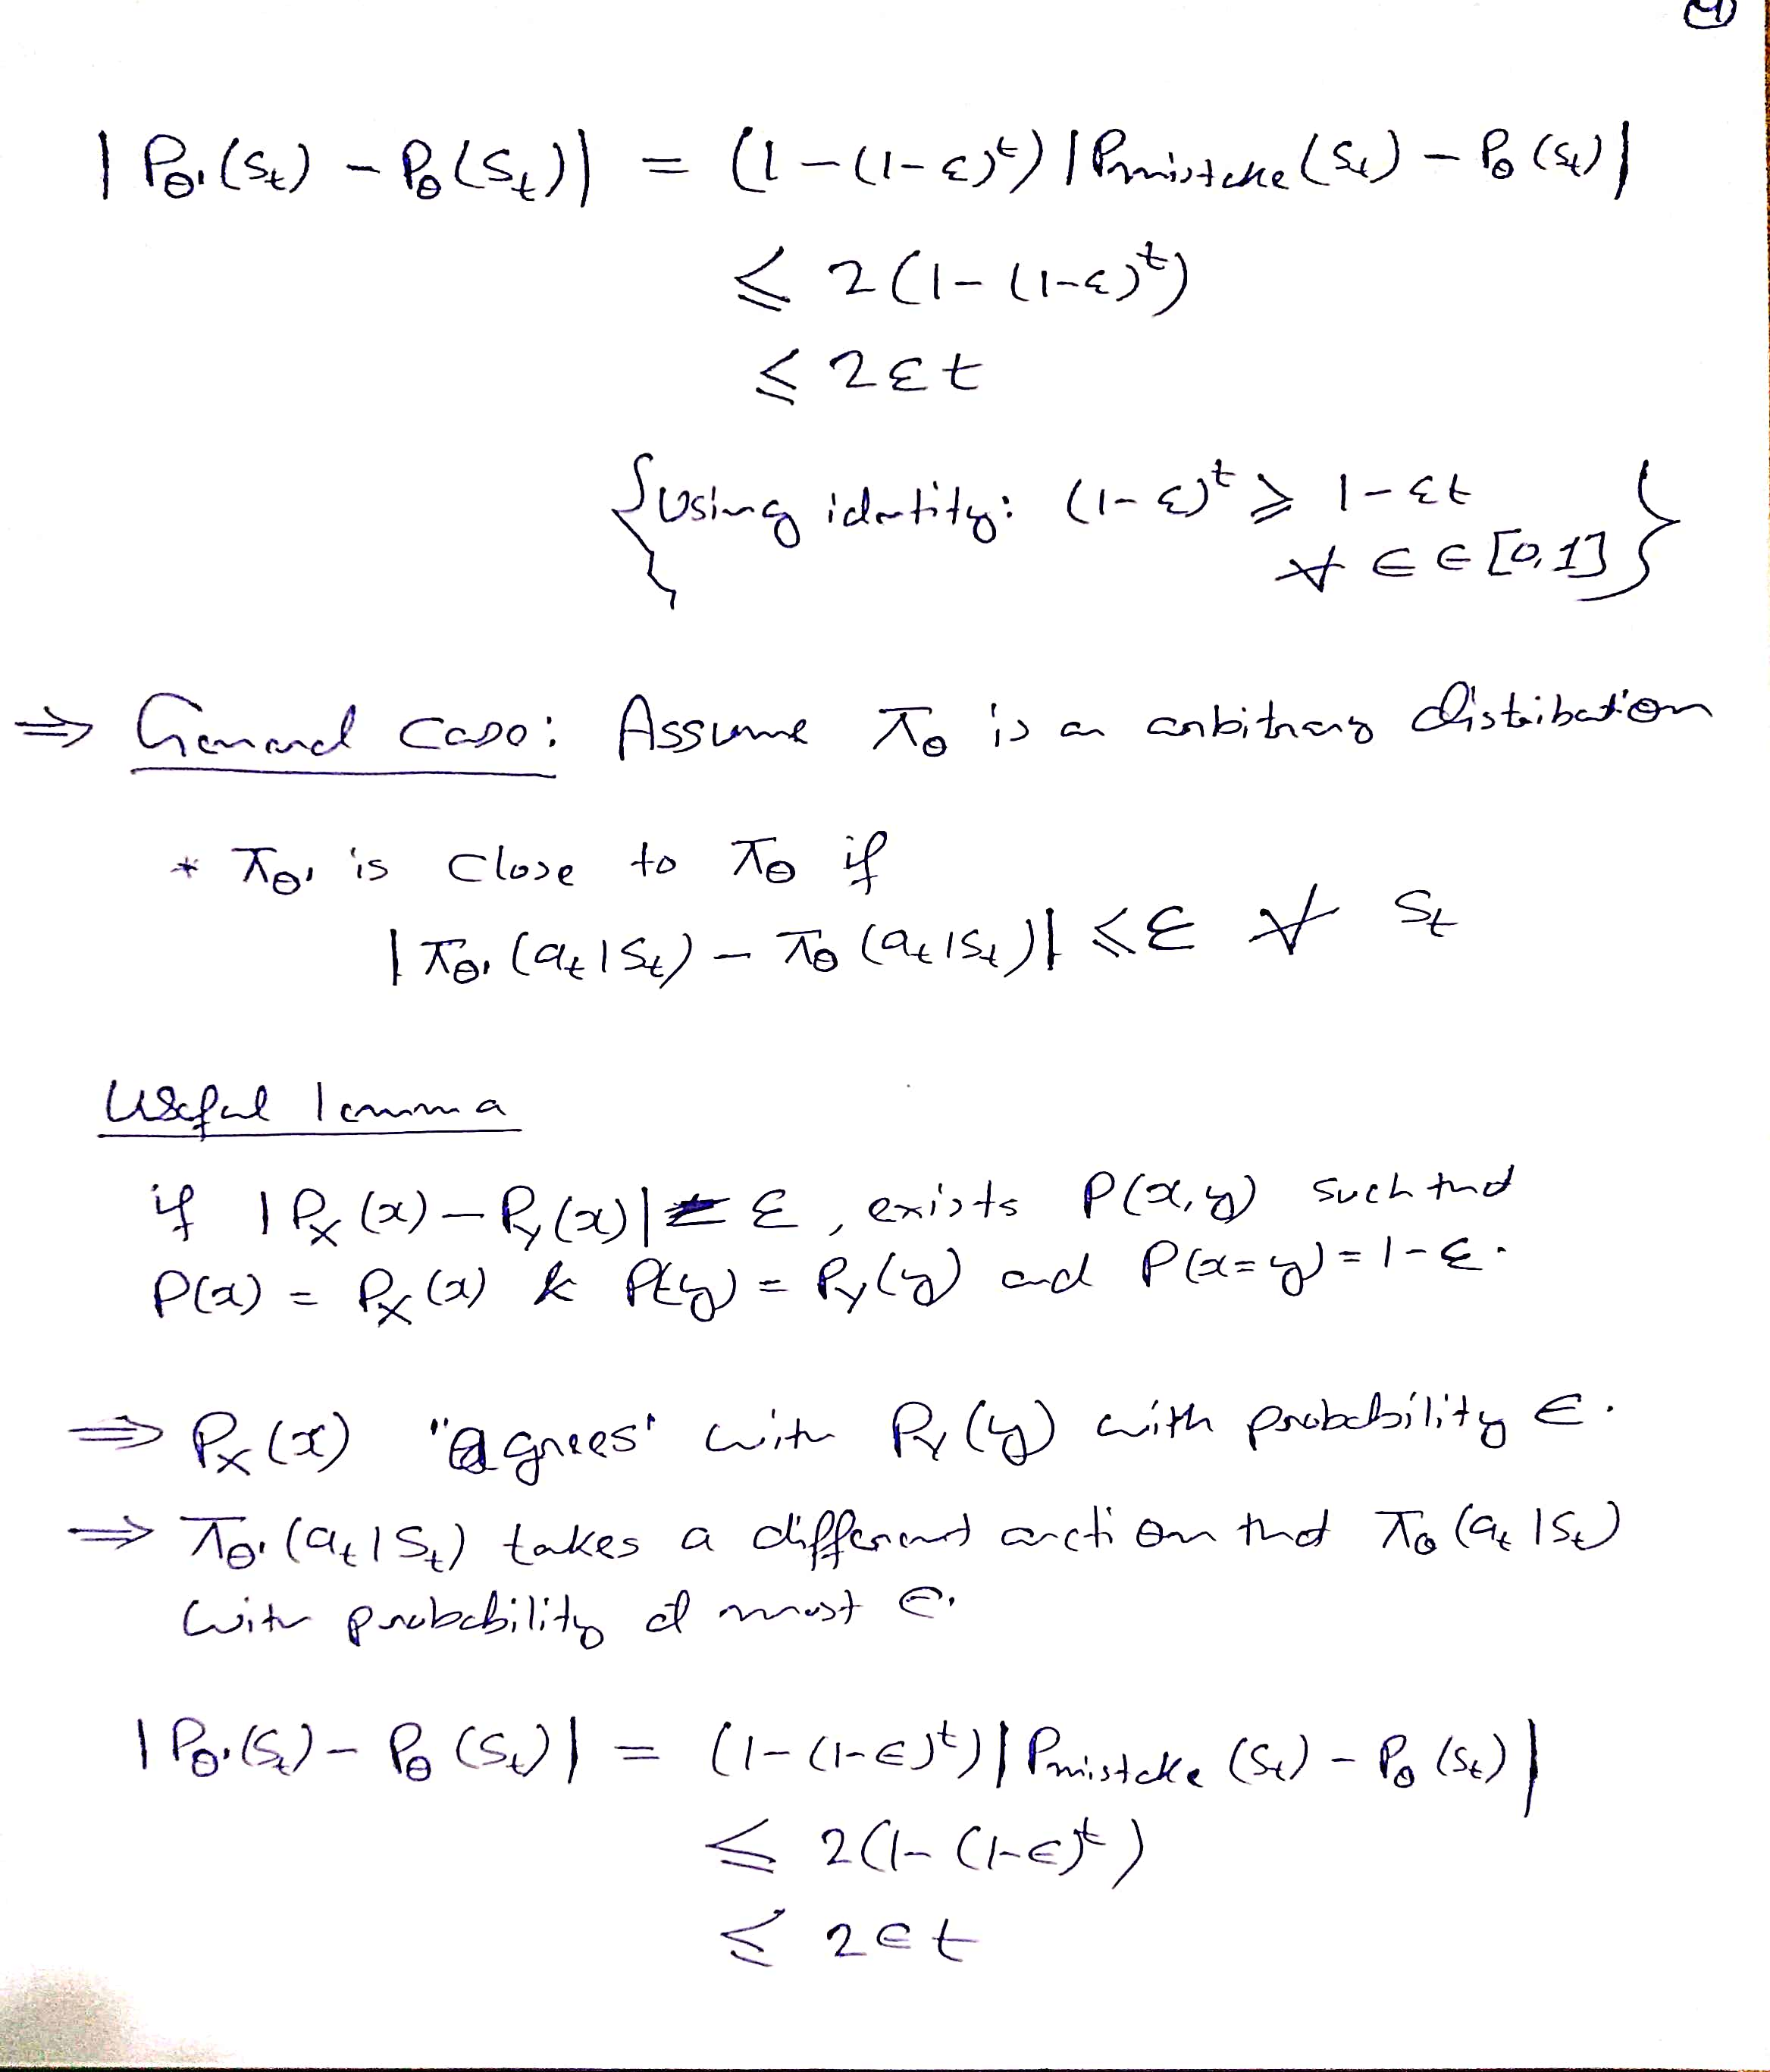 ④
|Pθ'(St) - Pθ(St)| = (1-(1-ε)^t) |Pmistake(St) - Pθ(St)|
≤ 2(1-(1-ε)^t)
≤ 2εt
{Using identity: (1-ε)^t ≥ 1-εt
∀ ∈ ∈ [0,1]}
⇒ General Case: Assume πθ is an arbitrary distribution
* πθ' is close to πθ if
|πθ'(at|St) - πθ(at|St)| ≤ ε ∀ St
Useful lemma
if |Px(x) - Py(x)| = ε, exists P(x,y) such that
P(x) = Px(x) & P(y) = Py(y) and P(x=y) = 1-ε.
⇒ Px(x) "agrees" with Py(y) with probability ∈.
⇒ πθ'(at|St) takes a different action that πθ(at|St)
with probability at most ∈.
|Pθ'(St) - Pθ(St)| = (1-(1-∈)^t) |Pmistake(St) - Pθ(St)|
≤ 2(1-(1-∈)^t)
≤ 2∈t